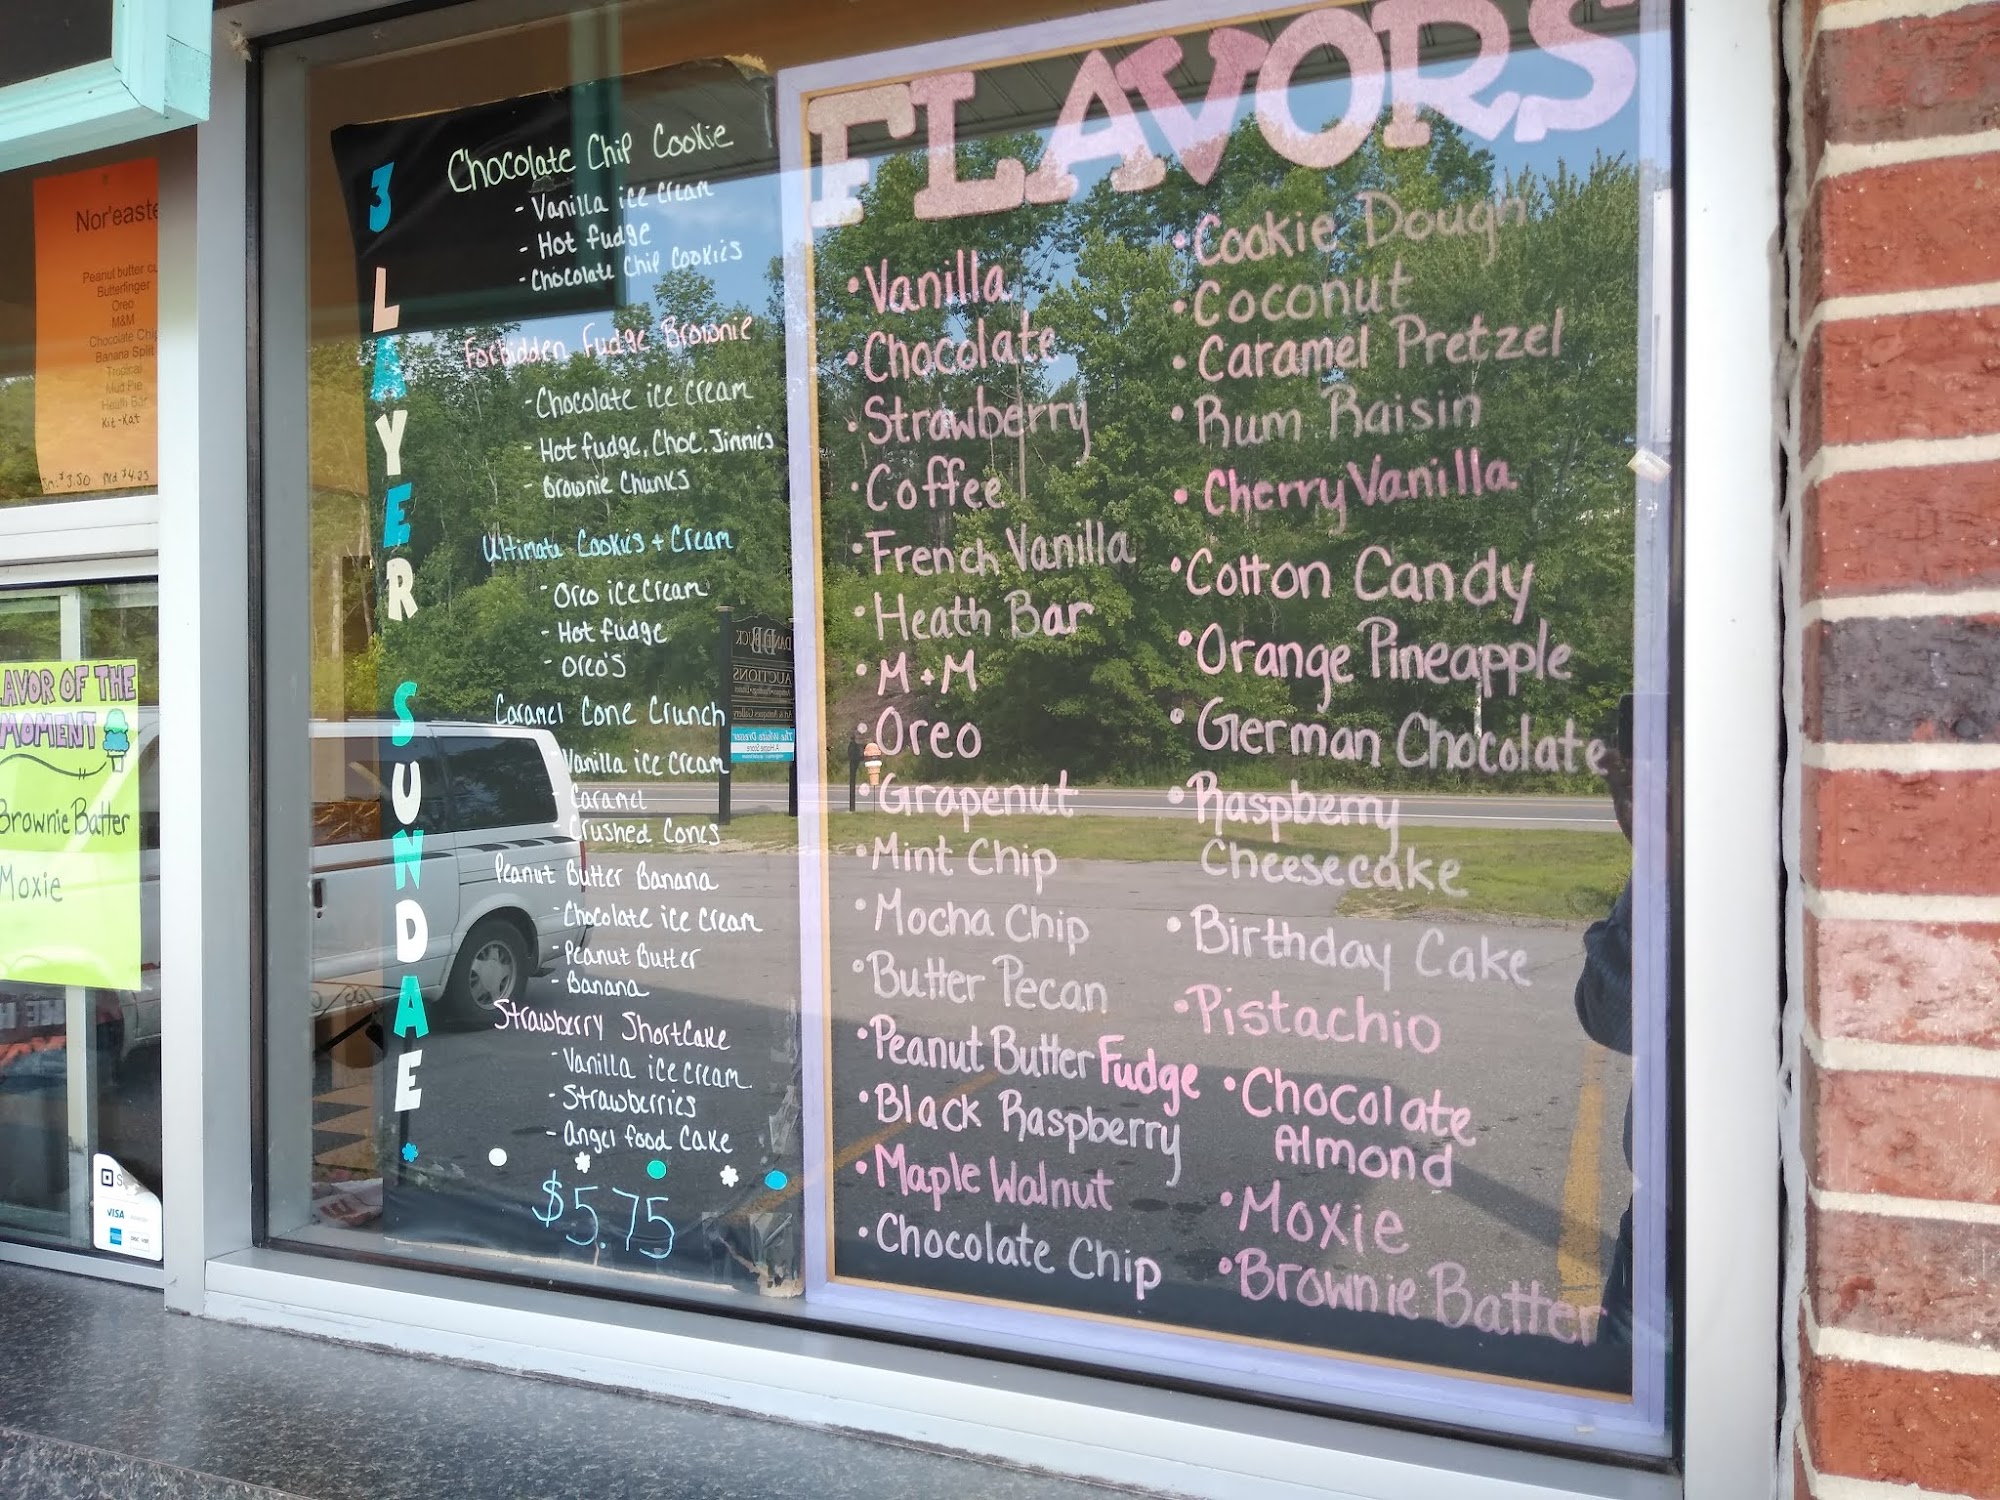 Nor'easte
Peanut butter cu
Butterfinger
Oreo
M&M
Chocolate Chip
Banana Split
Tropical
Mud Pie
Heath Bar
Kit-Kat
Sm: $3.50 Md $4.25
LAVOR OF THE
MOMENT
Brownie Batter
Moxie
VISA
3 LAYER SUNDAE
Chocolate Chip Cookie
- Vanilla ice cream
- Hot fudge
- Chocolate Chip Cookies
Forbidden Fudge Brownie
- Chocolate ice cream
- Hot fudge, Choc. Jimmies
- Brownie Chunks
Ultimate Cookies + Cream
- Oreo ice cream
- Hot fudge
- Oreo's
Caramel Cone Crunch
- Vanilla ice cream
- Caramel
- Crushed Cones
Peanut Butter Banana
- Chocolate ice cream
- Peanut Butter
- Banana
Strawberry Shortcake
- Vanilla ice cream
- Strawberries
- angel food Cake
$5.75
FLAVORS
• Vanilla
• Chocolate
• Strawberry
• Coffee
• French Vanilla
• Heath Bar
• M+M
• Oreo
• Grapenut
• Mint Chip
• Mocha Chip
• Butter Pecan
• Peanut Butter Fudge
• Black Raspberry
• Maple Walnut
• Chocolate Chip
• Cookie Dough
• Coconut
• Caramel Pretzel
• Rum Raisin
• Cherry Vanilla
• Cotton Candy
• Orange Pineapple
• German Chocolate
• Raspberry
Cheesecake
• Birthday Cake
• Pistachio
• Chocolate
Almond
• Moxie
• Brownie Batter
AUCTIONS